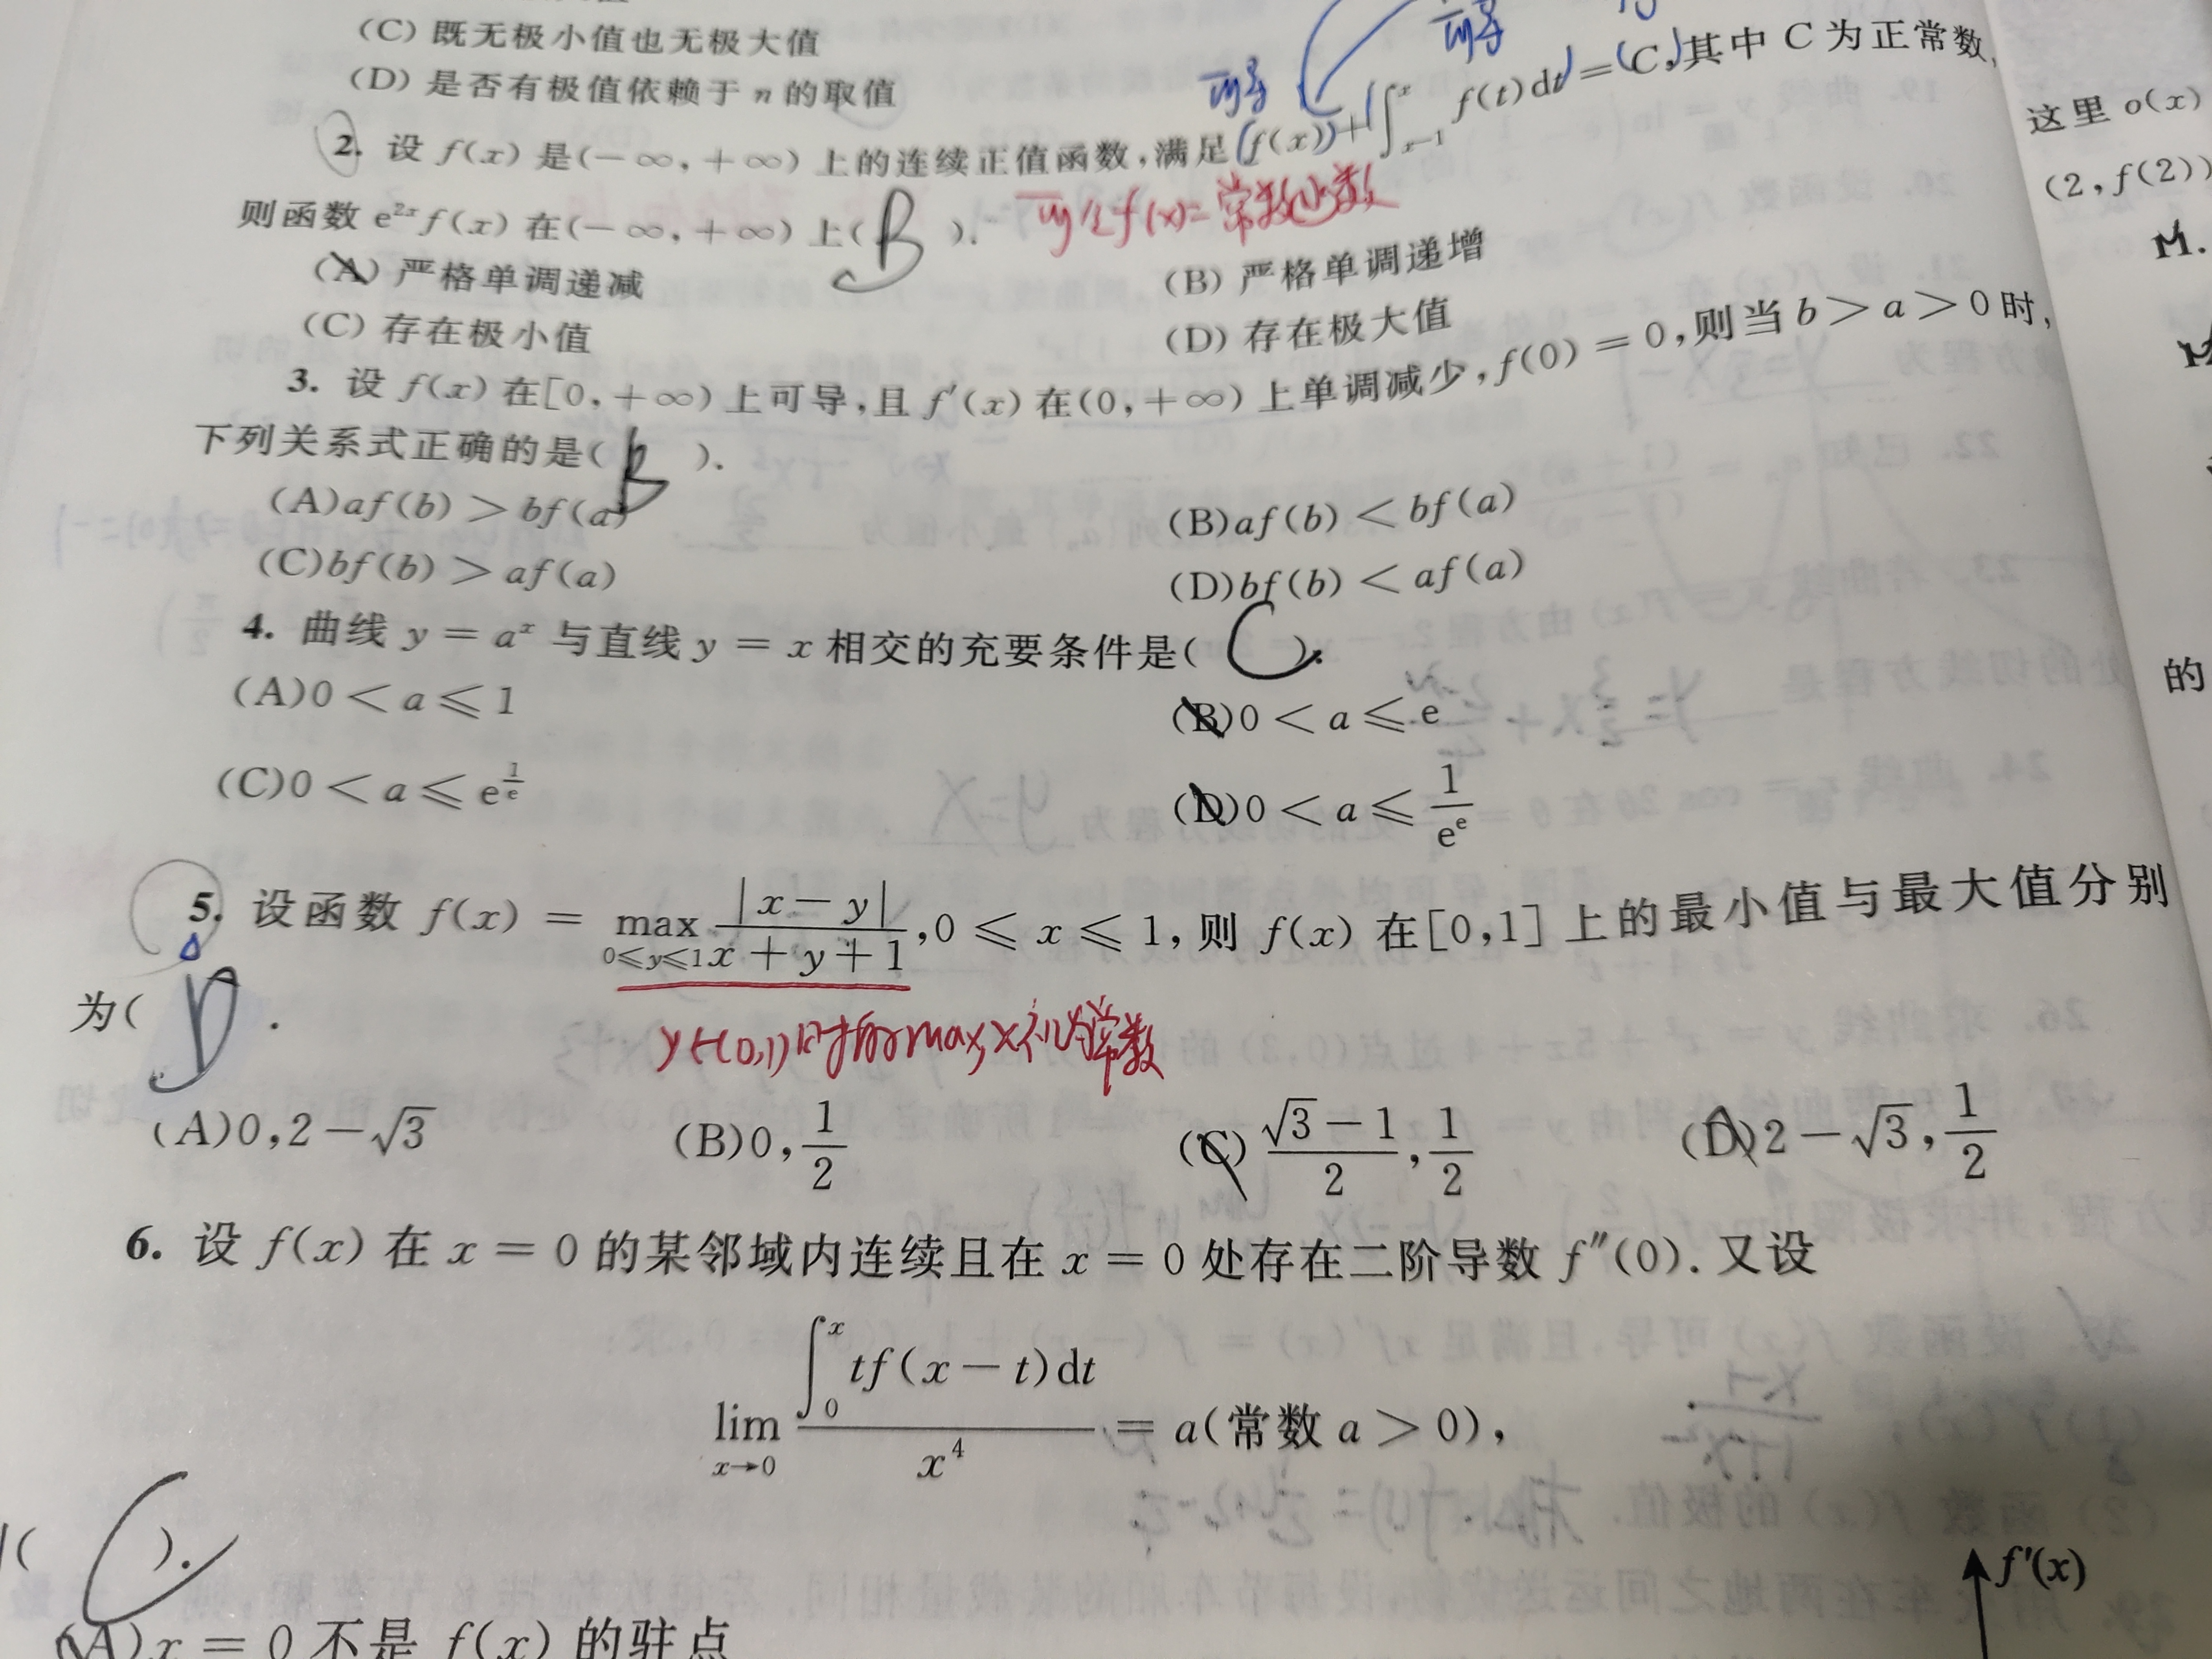 (C) 既无极小值也无极大值
(D) 是否有极值依赖于 n 的取值
可导
可导
2. 设 f(x) 是(−∞,+∞) 上的连续正值函数,满足 f(x)+∫_{x−1}^{x} f(t)dt = C,其中 C 为正常数,
则函数 e^{2x}f(x) 在(−∞,+∞) 上( B ).
(A) 严格单调递减
(B) 严格单调递增
(C) 存在极小值
(D) 存在极大值
3. 设 f(x) 在[0,+∞) 上可导,且 f′(x) 在(0,+∞) 上单调减少,f(0) = 0,则当 b > a > 0 时,
下列关系式正确的是( B ).
(A)af(b) > bf(a)
(B)af(b) < bf(a)
(C)bf(b) > af(a)
(D)bf(b) < af(a)
4. 曲线 y = a^x 与直线 y = x 相交的充要条件是( C ).
(A)0 < a ⩽ 1
(B)0 < a ⩽ e
(C)0 < a ⩽ e^{1/e}
(D)0 < a ⩽ 1/e^e
5. 设函数 f(x) = max_{0⩽y⩽1} |x−y|/(x+y+1),0 ⩽ x ⩽ 1,则 f(x) 在[0,1] 上的最小值与最大值分别
为( D .
y∈(0,1)时的max,x视为常数
(A)0,2−√3
(B)0,1/2
(C)(√3−1)/2,1/2
(D)2−√3,1/2
6. 设 f(x) 在 x = 0 的某邻域内连续且在 x = 0 处存在二阶导数 f″(0). 又设
lim_{x→0} ∫_0^x tf(x−t)dt / x^4 = a(常数 a > 0),
( C ).
(A)x = 0 不是 f(x) 的驻点
这里 o(x)
(2,f(2))
的
f′(x)